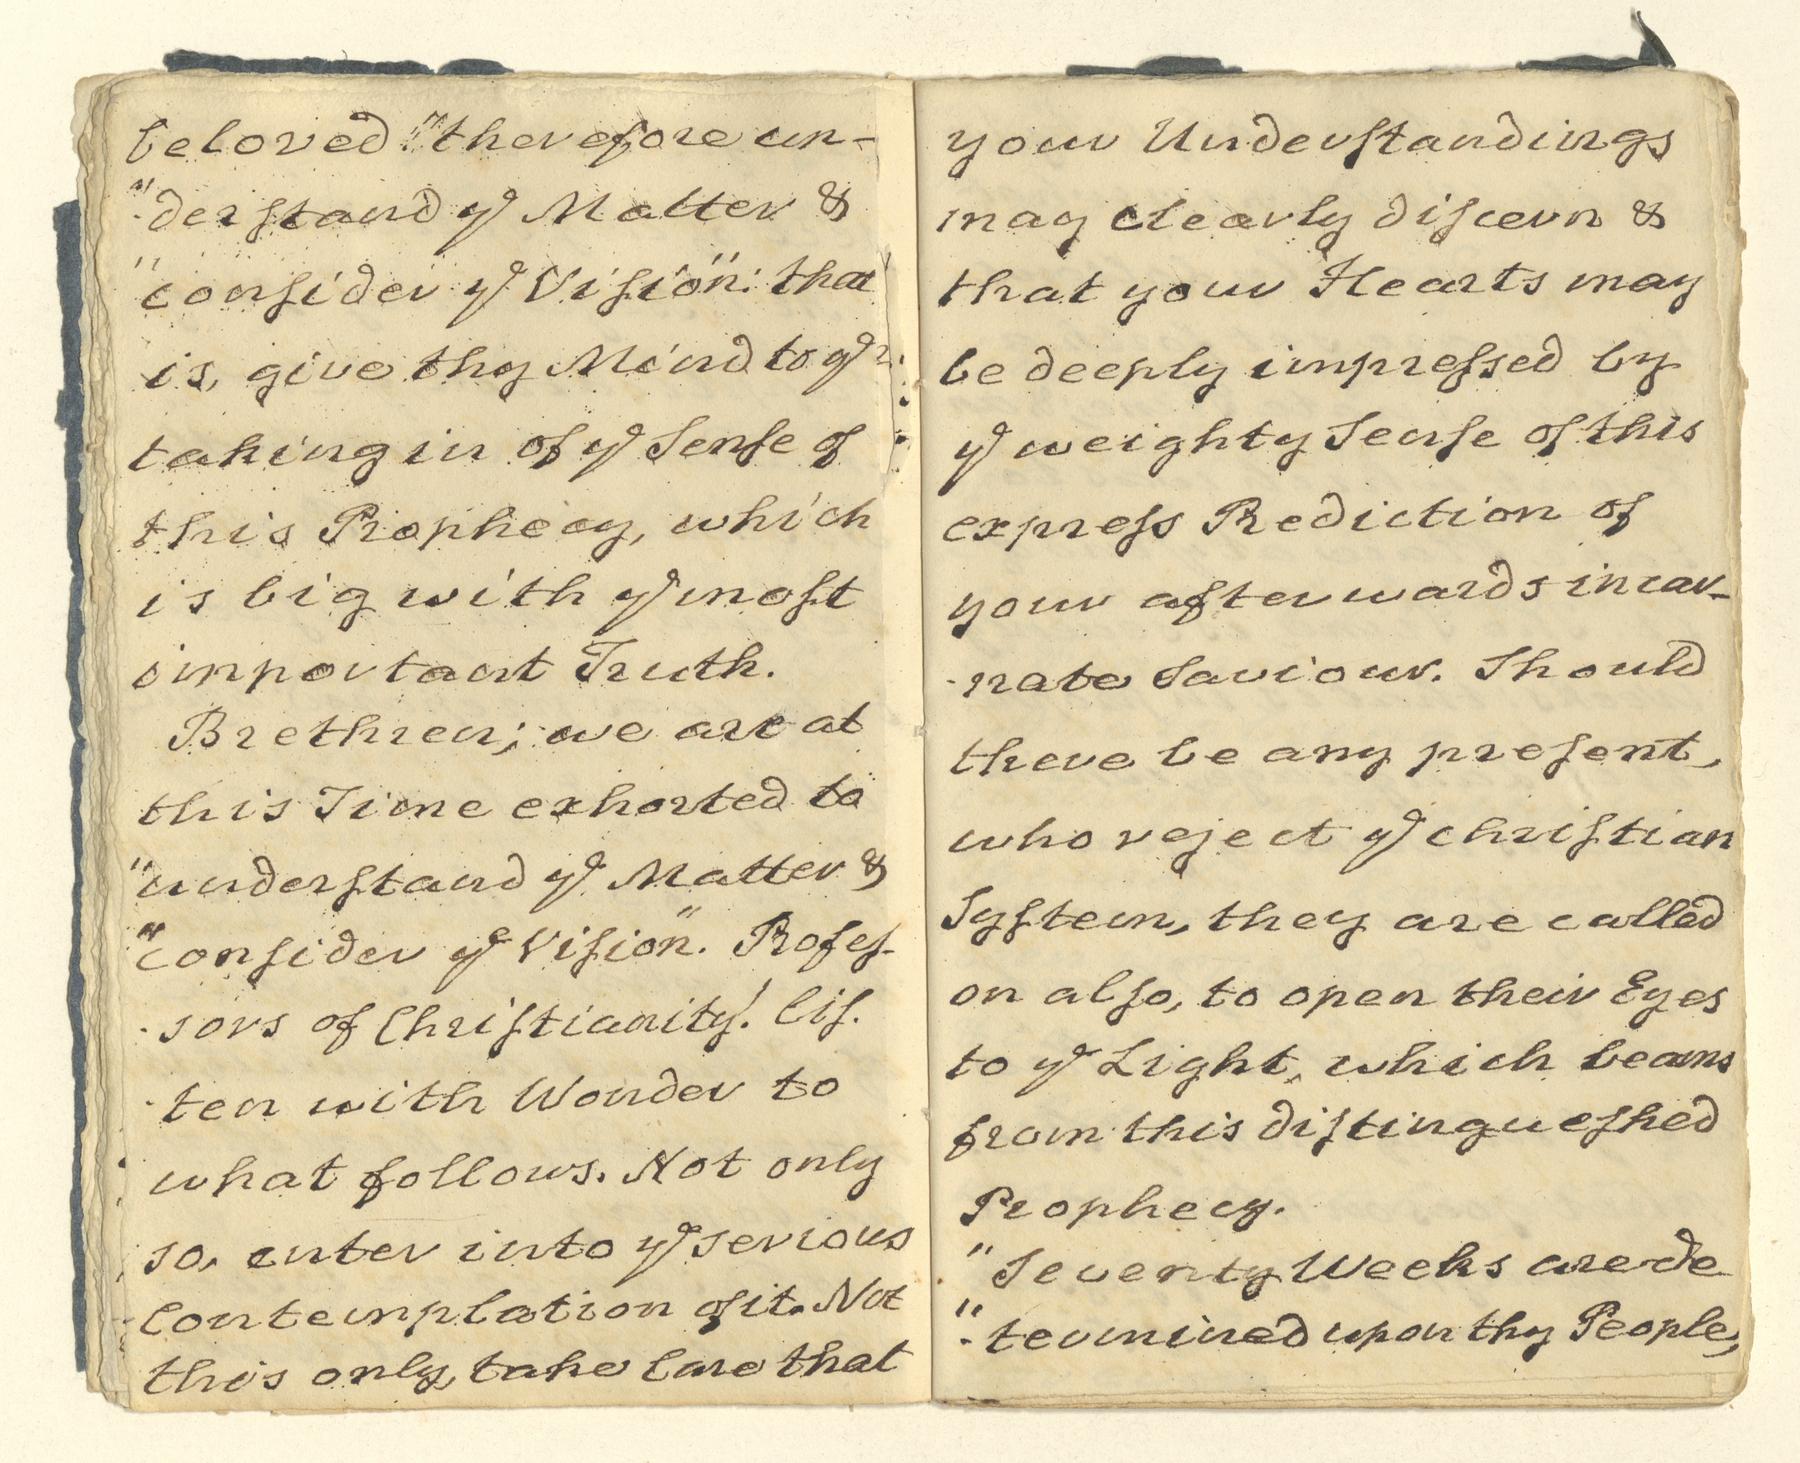 beloved: "therefore un-
"-derstand ye Matter &
"consider ye Vision": that
is, give thy Mind to ye
taking in of ye Sense of
this Prophecy, which
is big with ye most
important Truth.
Brethren; we are at
this Time exhorted to
"understand ye Matter &
"consider ye Vision". Profes-
-sors of Christianity! Lis-
-ten with Wonder to
what follows. Not only
so, enter into ye serious
Contemplation of it. Not
this only, take Care that
your Understandings
may clearly discern &
that your Hearts may
be deeply impressed by
ye weighty Sense of this
express Prediction of
your afterwards incar-
-nate Saviour. Should
there be any present,
who reject ye christian
System, they are called
on also, to open their Eyes
to ye Light, which beams
from this distingueshed
Prophecy.
"Seventy Weeks are de
"-termined upon thy People,